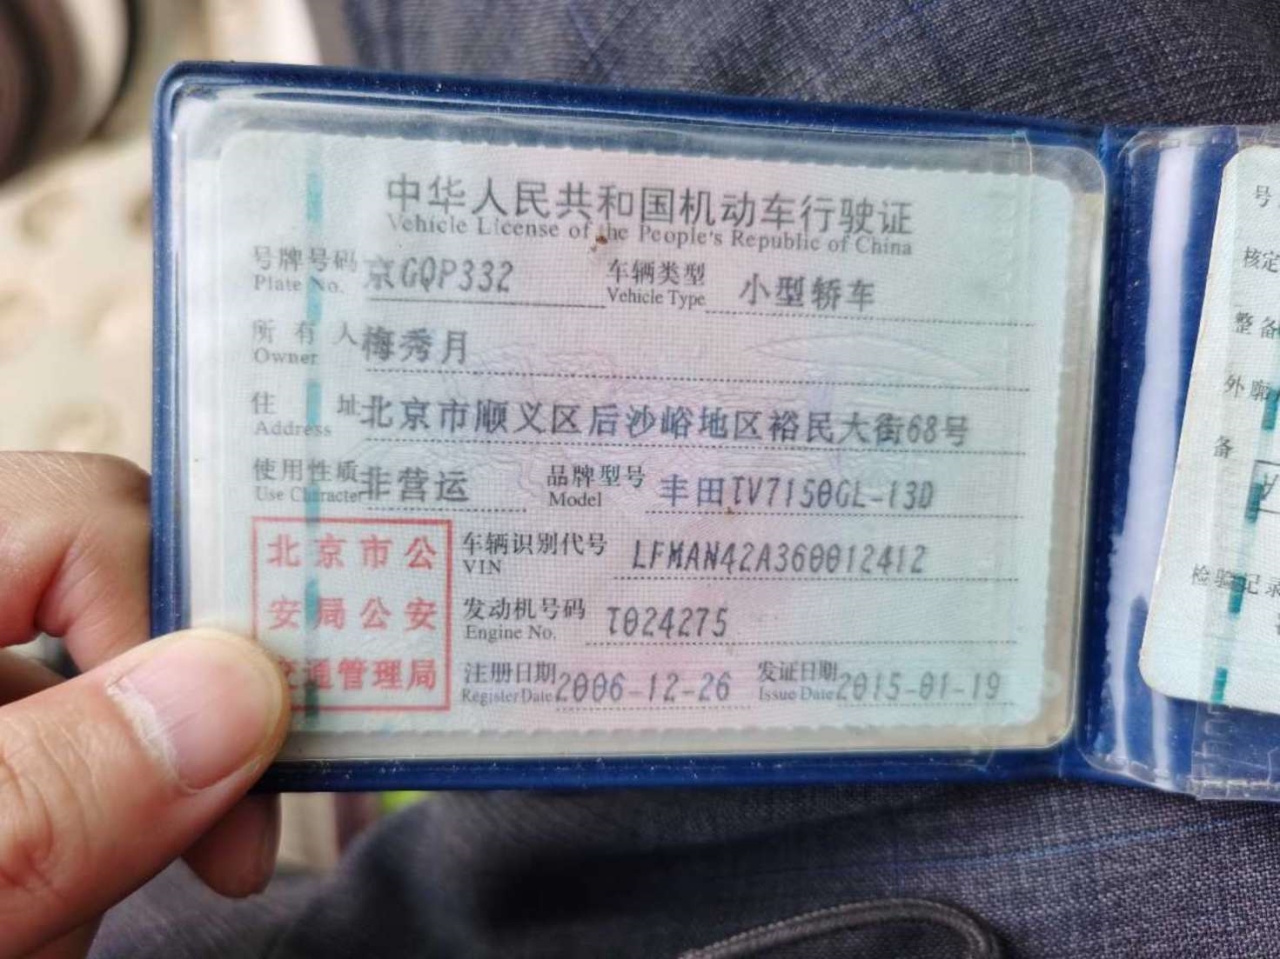 中华人民共和国机动车行驶证
Vehicle License of the People's Republic of China
号牌号码 京GQP332 车辆类型 小型轿车
Plate No. Vehicle Type
所有人 梅秀月
Owner
住址 北京市顺义区后沙峪地区裕民大街68号
Address
使用性质 非营运 品牌型号 丰田TV7150GL-13D
Use Character Model
北京市公
安局公安
交通管理局
车辆识别代号 LFMAN42A360012412
VIN
发动机号码 T024275
Engine No.
注册日期 2006-12-26 发证日期 2015-01-19
Register Date Issue Date
号
核定
整备
外廓
备
检验记录